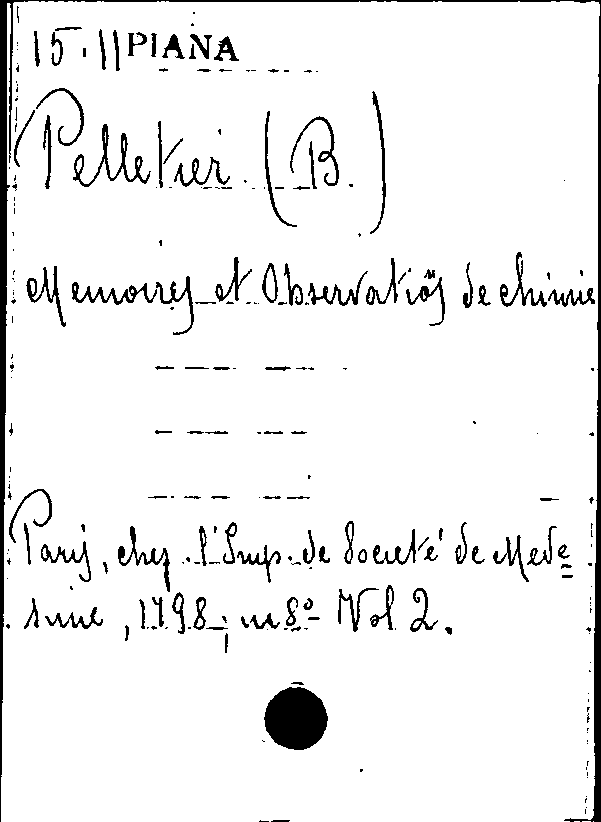 15. 11 PIANA
Pelletier (B.)
Memoires et Observatiõs de chimie
Paris, chez l'Imp. de Societé de Mede=
sine, 1798, in 8º Vol 2.